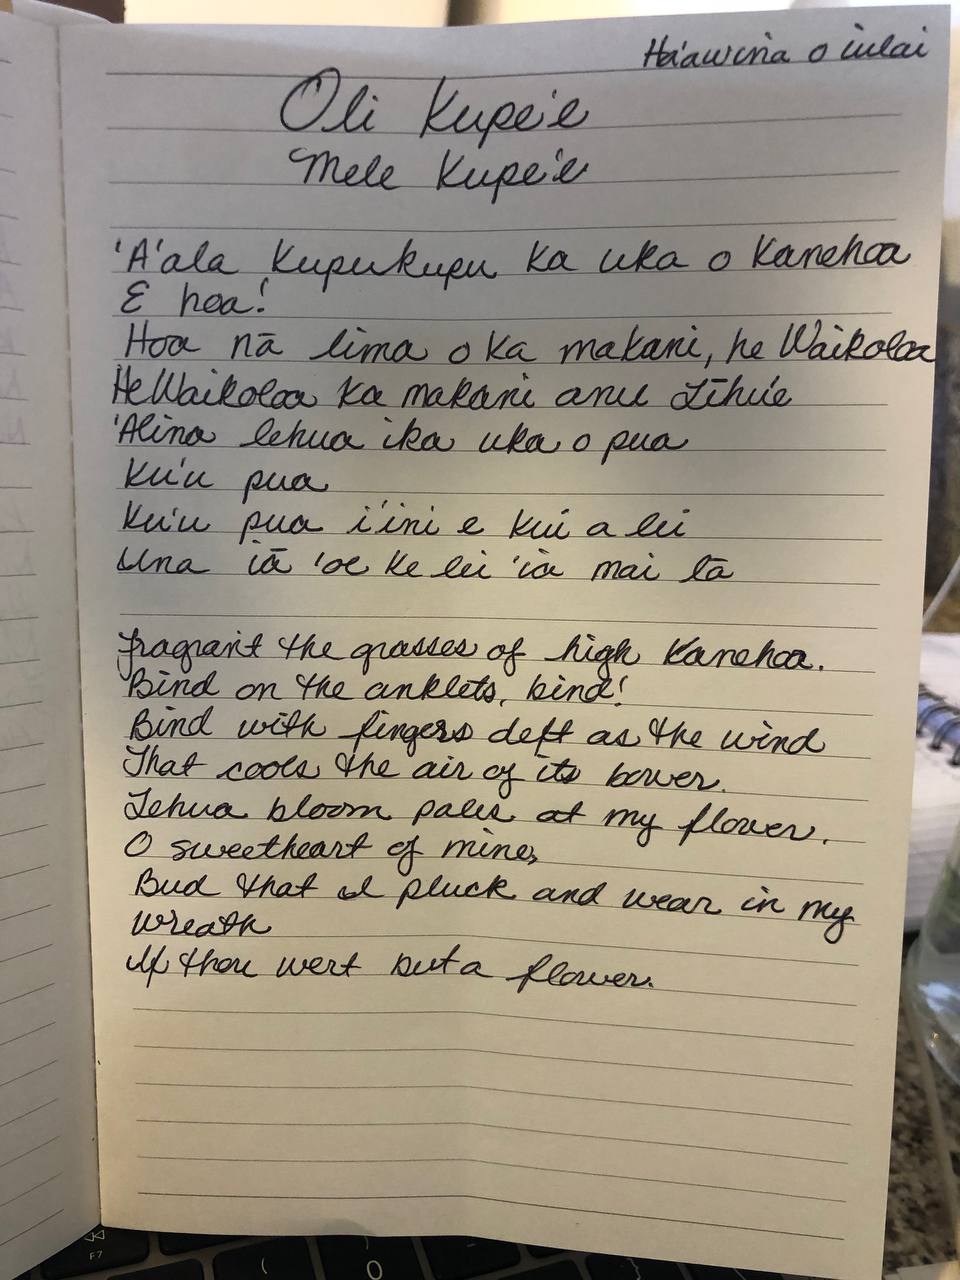 Ha'awina o iulai
Oli Kupe'e
Mele Kupe'e
'A'ala Kupukupu Ka uka o Kanehoa
E hoa!
Hoa nā lima o ka makani, he Waikoloa
He Waikoloa Ka makani anu Līhu'e
'Alina lehua i ka uka o pua
Ku'u pua
Ku'u pua i'ini e kui a lei
Una iā 'oe Ke lei 'iā mai lā
Fragrant the grasses of high Kanehoa.
Bind on the anklets, bind!
Bind with fingers deft as the wind
That cools the air of its bower.
Lehua bloom pales at my flower.
O sweetheart of mine,
Bud that I pluck and wear in my
wreath
If thou wert but a flower.
F7